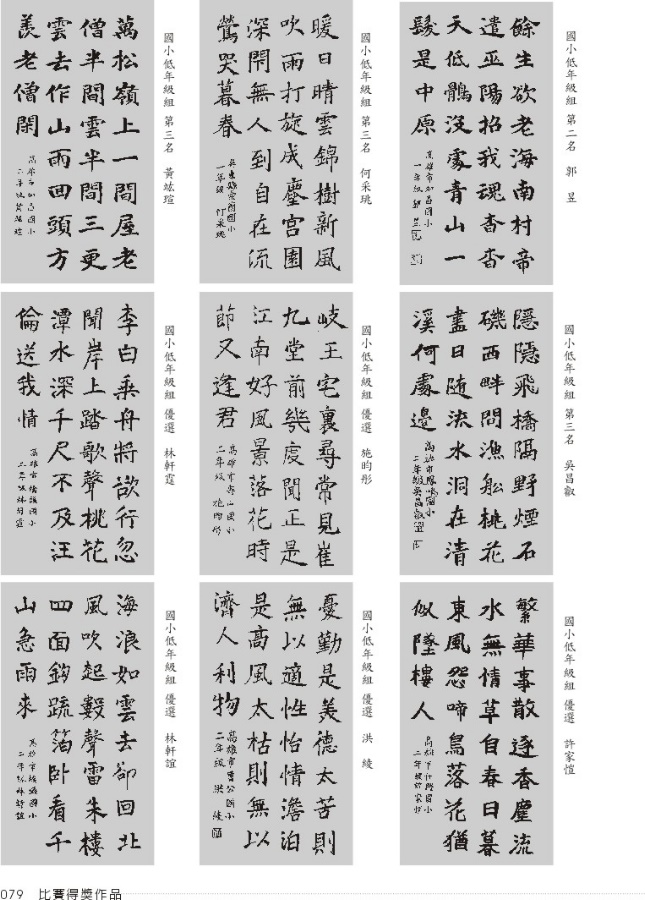 國小低年級組 第二名 郭 昱
餘生欲老海南村帝
遣巫陽招我魂杳杳
天低鶻沒處青山一
髮是中原
高雄市加昌國小
一年級 郭昱
國小低年級組 第三名 何采珧
暖日晴雲錦樹新風
吹雨打旋成塵宮園
深閉無人到自在流
鶯哭暮春
一年級 何采珧
國小低年級組 第三名 黃竑瑄
萬松嶺上一間屋老
僧半間雲半間三更
雲去作山雨回頭方
羨老僧閑
高雄市加昌國小
二年級黃竑瑄
國小低年級組 第三名 吳昌叡
隱隱飛橋隔野煙石
磯西畔問漁船桃花
盡日随流水洞在清
溪何處邊
二年級吳昌叡
國小低年級組 優選 施昀彤
岐王宅裏尋常見崔
九堂前幾度聞正是
江南好風景落花時
節又逢君
二年級 施昀彤
國小低年級組 優選 林軒霆
李白乘舟將欲行忽
聞岸上踏歌聲桃花
潭水深千尺不及汪
倫送我情
二年級林軒霆
國小低年級組 優選 許家愷
繁華事散逐香塵流
水無情草自春日暮
東風怨啼鳥落花猶
似墜樓人
國小低年級組 優選 洪 綾
憂勤是美德太苦則
無以適性怡情澹泊
是高風太枯則無以
濟人利物
高雄市曹公國小
二年級 洪綾
國小低年級組 優選 林軒誼
海浪如雲去卻回北
風吹起數聲雷朱樓
四面鉤疏箔卧看千
山急雨來
二年級林軒誼
079 比賽得獎作品